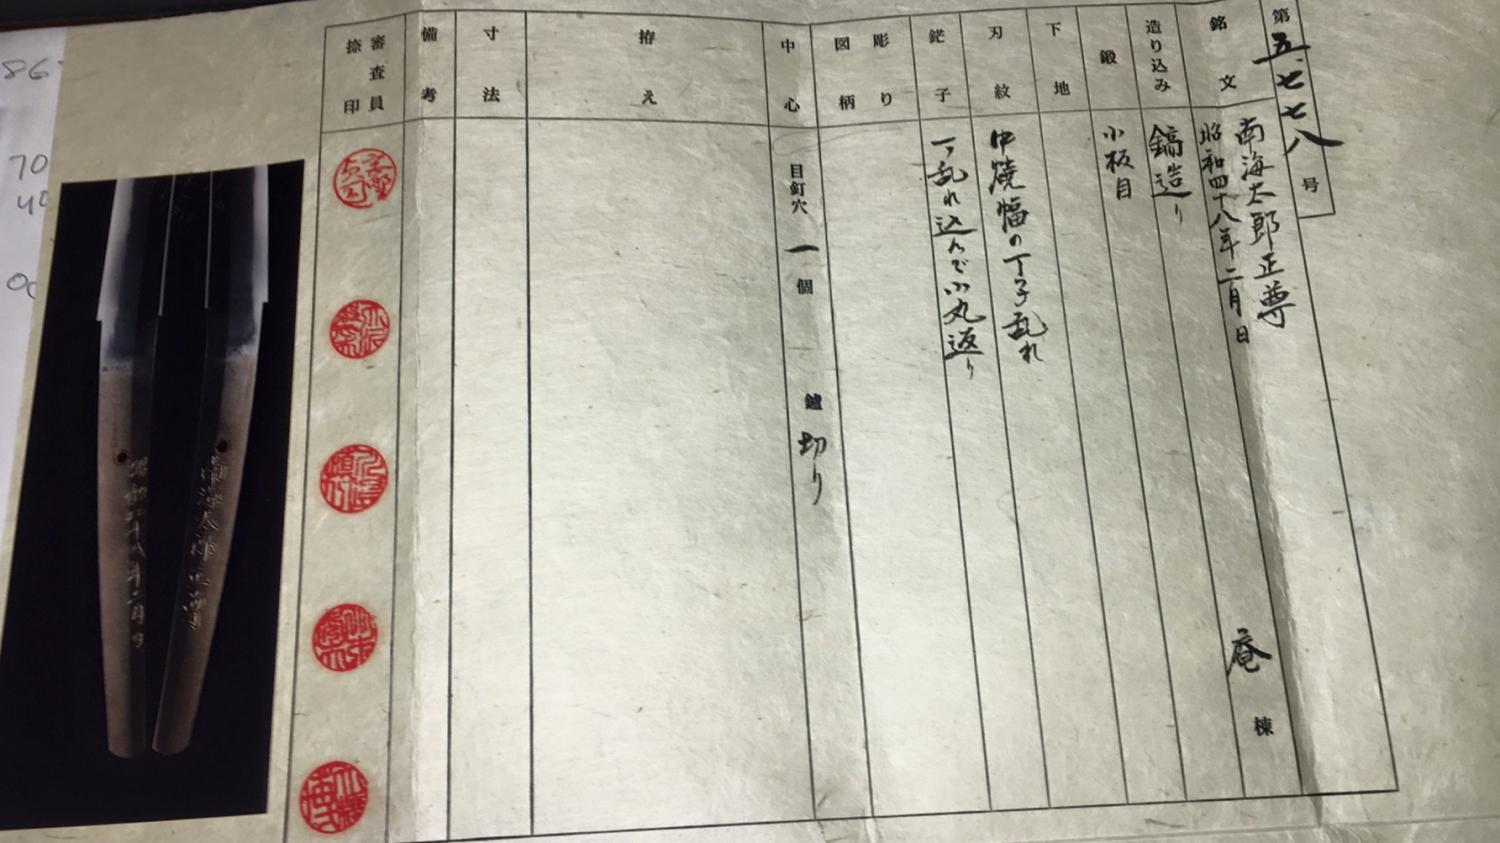 第五七七八号
銘文
南海太郎正尊
昭和四十八年二月日
庵棟
造り込み
鎬造り
鍛
小板目
下地
刃紋
中焼幅の丁子乱れ
鋩子
乱れ込んで小丸返り
彫り
図柄
中心
目釘穴 一 個
鑢 切り
拵え
寸法
備考
審査員
捺印
昭和四十八年二月日
南海太郎正尊
86
70
40